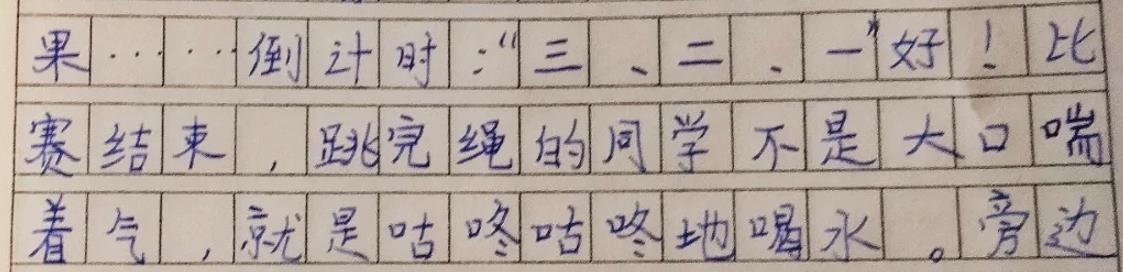 果……倒计时:“三、二、一”好!比
赛结束,跳完绳的同学不是大口喘
着气,就是咕咚咕咚地喝水。旁边